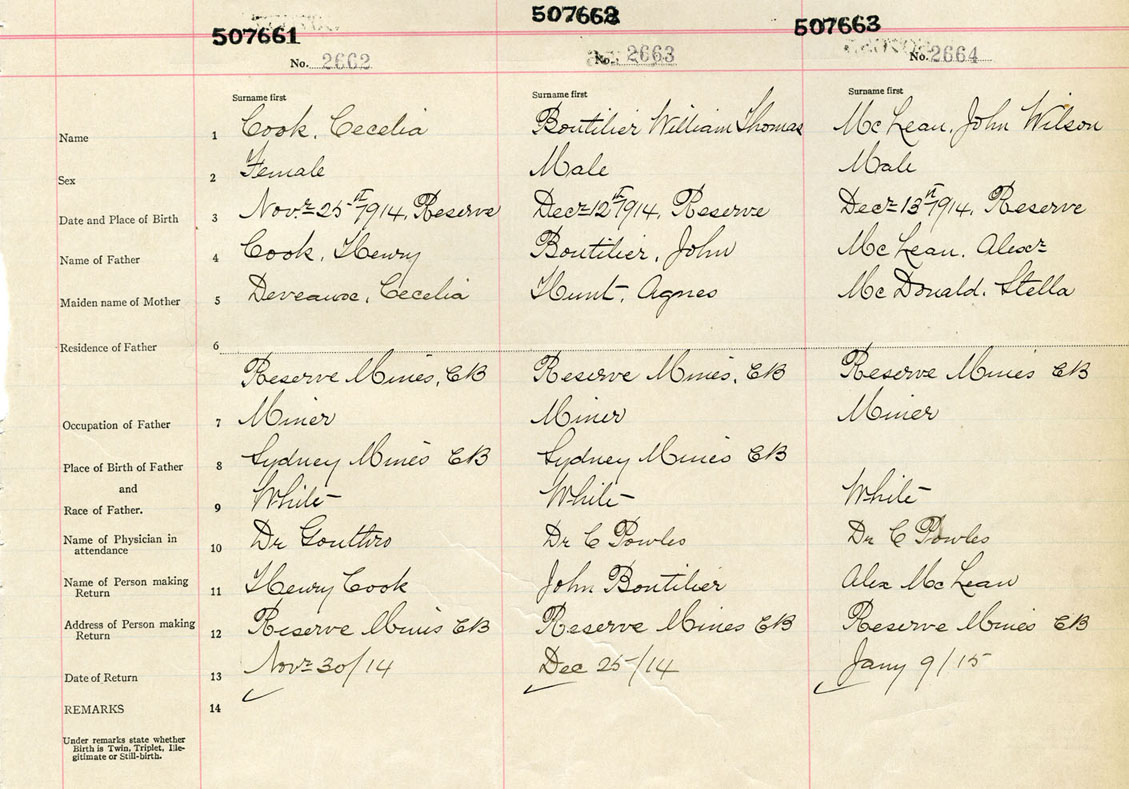 507661 507662 507663
No. 2662 No. 2663 No. 2664
Surname first Surname first Surname first
Name 1 Cook, Cecelia Boutilier William Thomas McLean, John Wilson
Sex 2 Female Male Male
Date and Place of Birth 3 Novr 25th 1914, Reserve Decr 12th 1914, Reserve Decr 13th 1914, Reserve
Name of Father 4 Cook, Henry Boutilier, John McLean, Alexr
Maiden name of Mother 5 Deveaux, Cecelia Hunt, Agnes McDonald, Stella
Residence of Father 6
Reserve Mines, CB Reserve Mines, CB Reserve Mines CB
Occupation of Father 7 Miner Miner Miner
Place of Birth of Father 8 Sydney Mines CB Sydney Mines CB
and
Race of Father. 9 White White White
Name of Physician in
attendance 10 Dr Gouthro Dr C Powles Dr C Powles
Name of Person making
Return 11 Henry Cook John Boutilier Alex McLean
Address of Person making
Return 12 Reserve Mines CB Reserve Mines CB Reserve Mines CB
Date of Return 13 Novr 30/14 Dec 25/14 Jany 9/15
REMARKS 14
Under remarks state whether
Birth is Twin, Triplet, Ille-
gitimate or Still-birth.